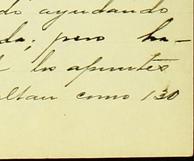 do ayudando
da; pero ha-
los apuntes
altan como 130